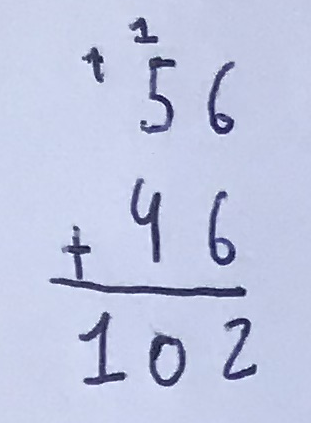 1 1
56
+ 46
102